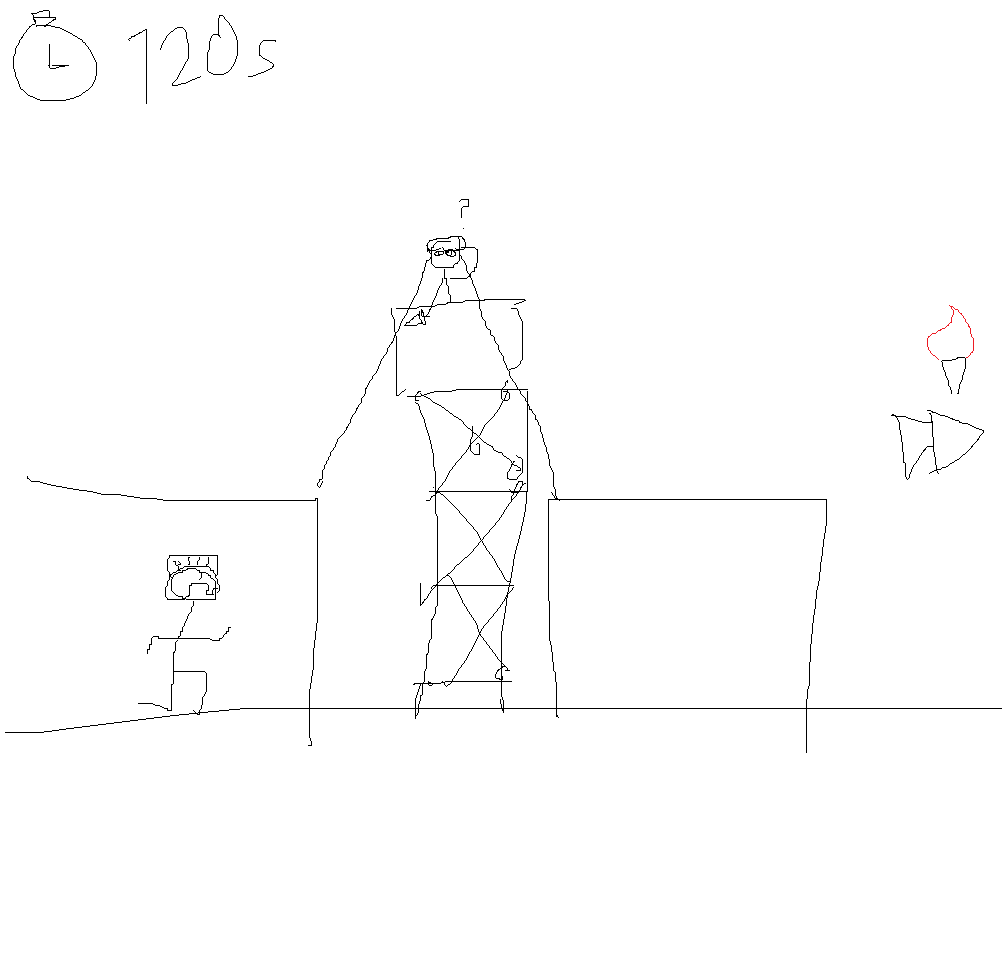 120s
?